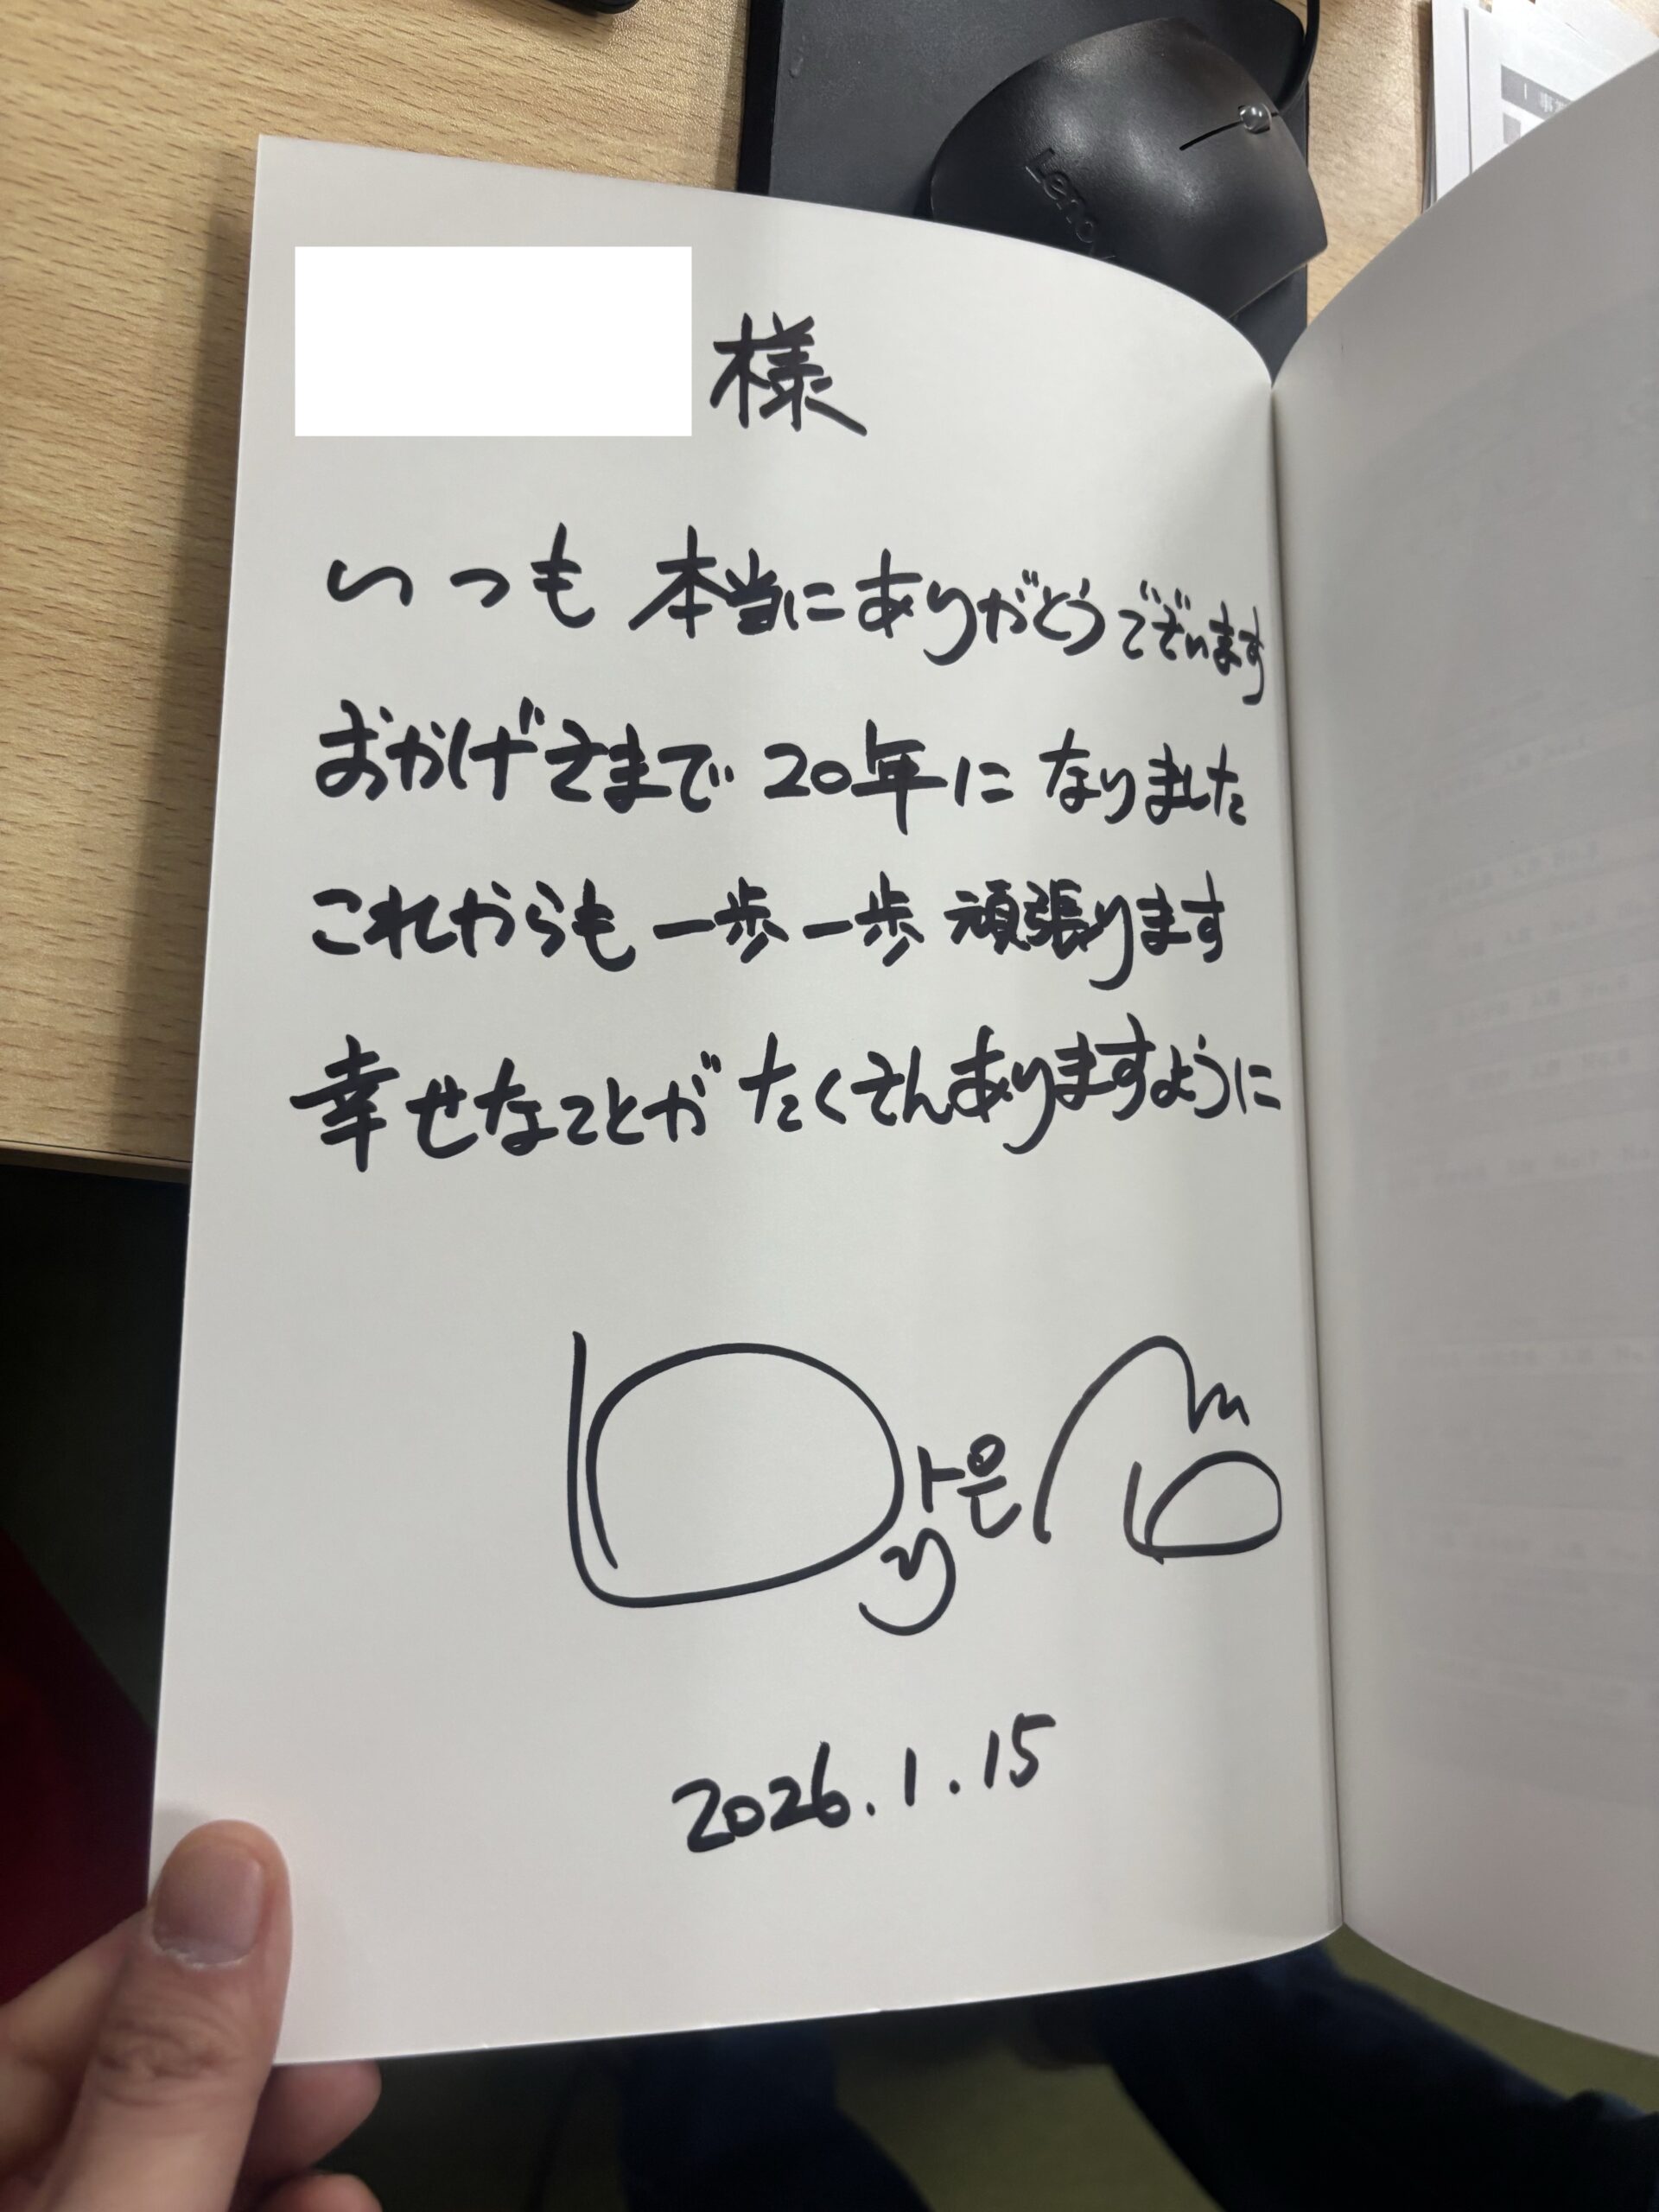 Leno
様
いつも 本当にありがとうございます
おかげさまで 20年に なりました
これからも 一歩一歩 頑張ります
幸せなことが たくさんありますように
2026.1.15